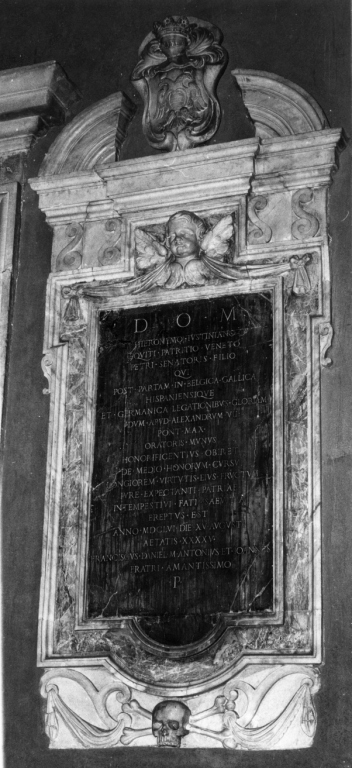 D O M
HIERONYMO·IVSTINIANO
EQVITI·PATRITIO·VENETO
PETRI·SENATORIS·FILIO
QVI
POST·PARTAM·IN·BELGICA·GALLICA
HISPANIENSIQVE
ET·GERMANICA·LEGATIONIBVS·GLORIAM
DVM·APVD·ALEXANDRVM·VII
PONT·MAX·
ORATORIS·MVNVS
HONORIFICENTIVS·OBIRET
DE·MEDIO·HONORVM·CVRSV
VIRTVTIS·EIVS
EXPECTANTI·PATRIA
INTEMPESTIVE·FATI
EREPTVS·EST
ANNO·MDCLVI·DIE·XV
AETATIS·XXXXV
DANIEL·M·ANTONIVS·ET
FRATRI·AMANTISSIMO
P